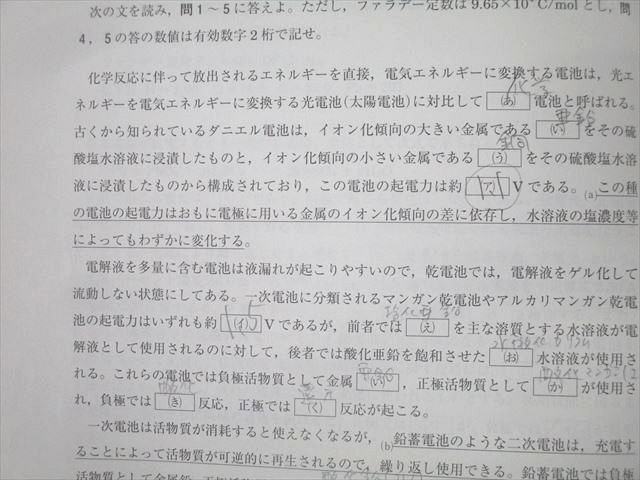 次の文を読み，問1～5に答えよ。ただし，ファラデー定数は9.65×10⁴C/molとし，問
4，5の答の数値は有効数字2桁で記せ。
化学反応に伴って放出されるエネルギーを直接，電気エネルギーに変換する電池は，光エ
化学
ネルギーを電気エネルギーに変換する光電池(太陽電池)に対比して (あ) 電池と呼ばれる。
亜鉛
古くから知られているダニエル電池は，イオン化傾向の大きい金属である (い) をその硫
酸塩水溶液に浸漬したものと，イオン化傾向の小さい金属である (う) をその硫酸塩水溶
液に浸漬したものから構成されており，この電池の起電力は約 (ア) Vである。(a)この種
の電池の起電力はおもに電極に用いる金属のイオン化傾向の差に依存し，水溶液の塩濃度等
によってもわずかに変化する。
電解液を多量に含む電池は液漏れが起こりやすいので，乾電池では，電解液をゲル化して
流動しない状態にしてある。一次電池に分類されるマンガン乾電池やアルカリマンガン乾電
塩化亜鉛
池の起電力はいずれも約 (イ) Vであるが，前者では (え) を主な溶質とする水溶液が電
水酸化カリウム
解液として使用されるのに対して，後者では酸化亜鉛を飽和させた (お) 水溶液が使用さ
亜鉛
酸化マンガン
れる。これらの電池では負極活物質として金属 (い) ，正極活物質として (か) が使用さ
酸化
還元
れ，負極では (き) 反応，正極では (く) 反応が起こる。
一次電池は活物質が消耗すると使えなくなるが，(b)鉛蓄電池のような二次電池は，充電す
ることによって活物質が可逆的に再生されるので，繰り返し使用できる。鉛蓄電池では負極